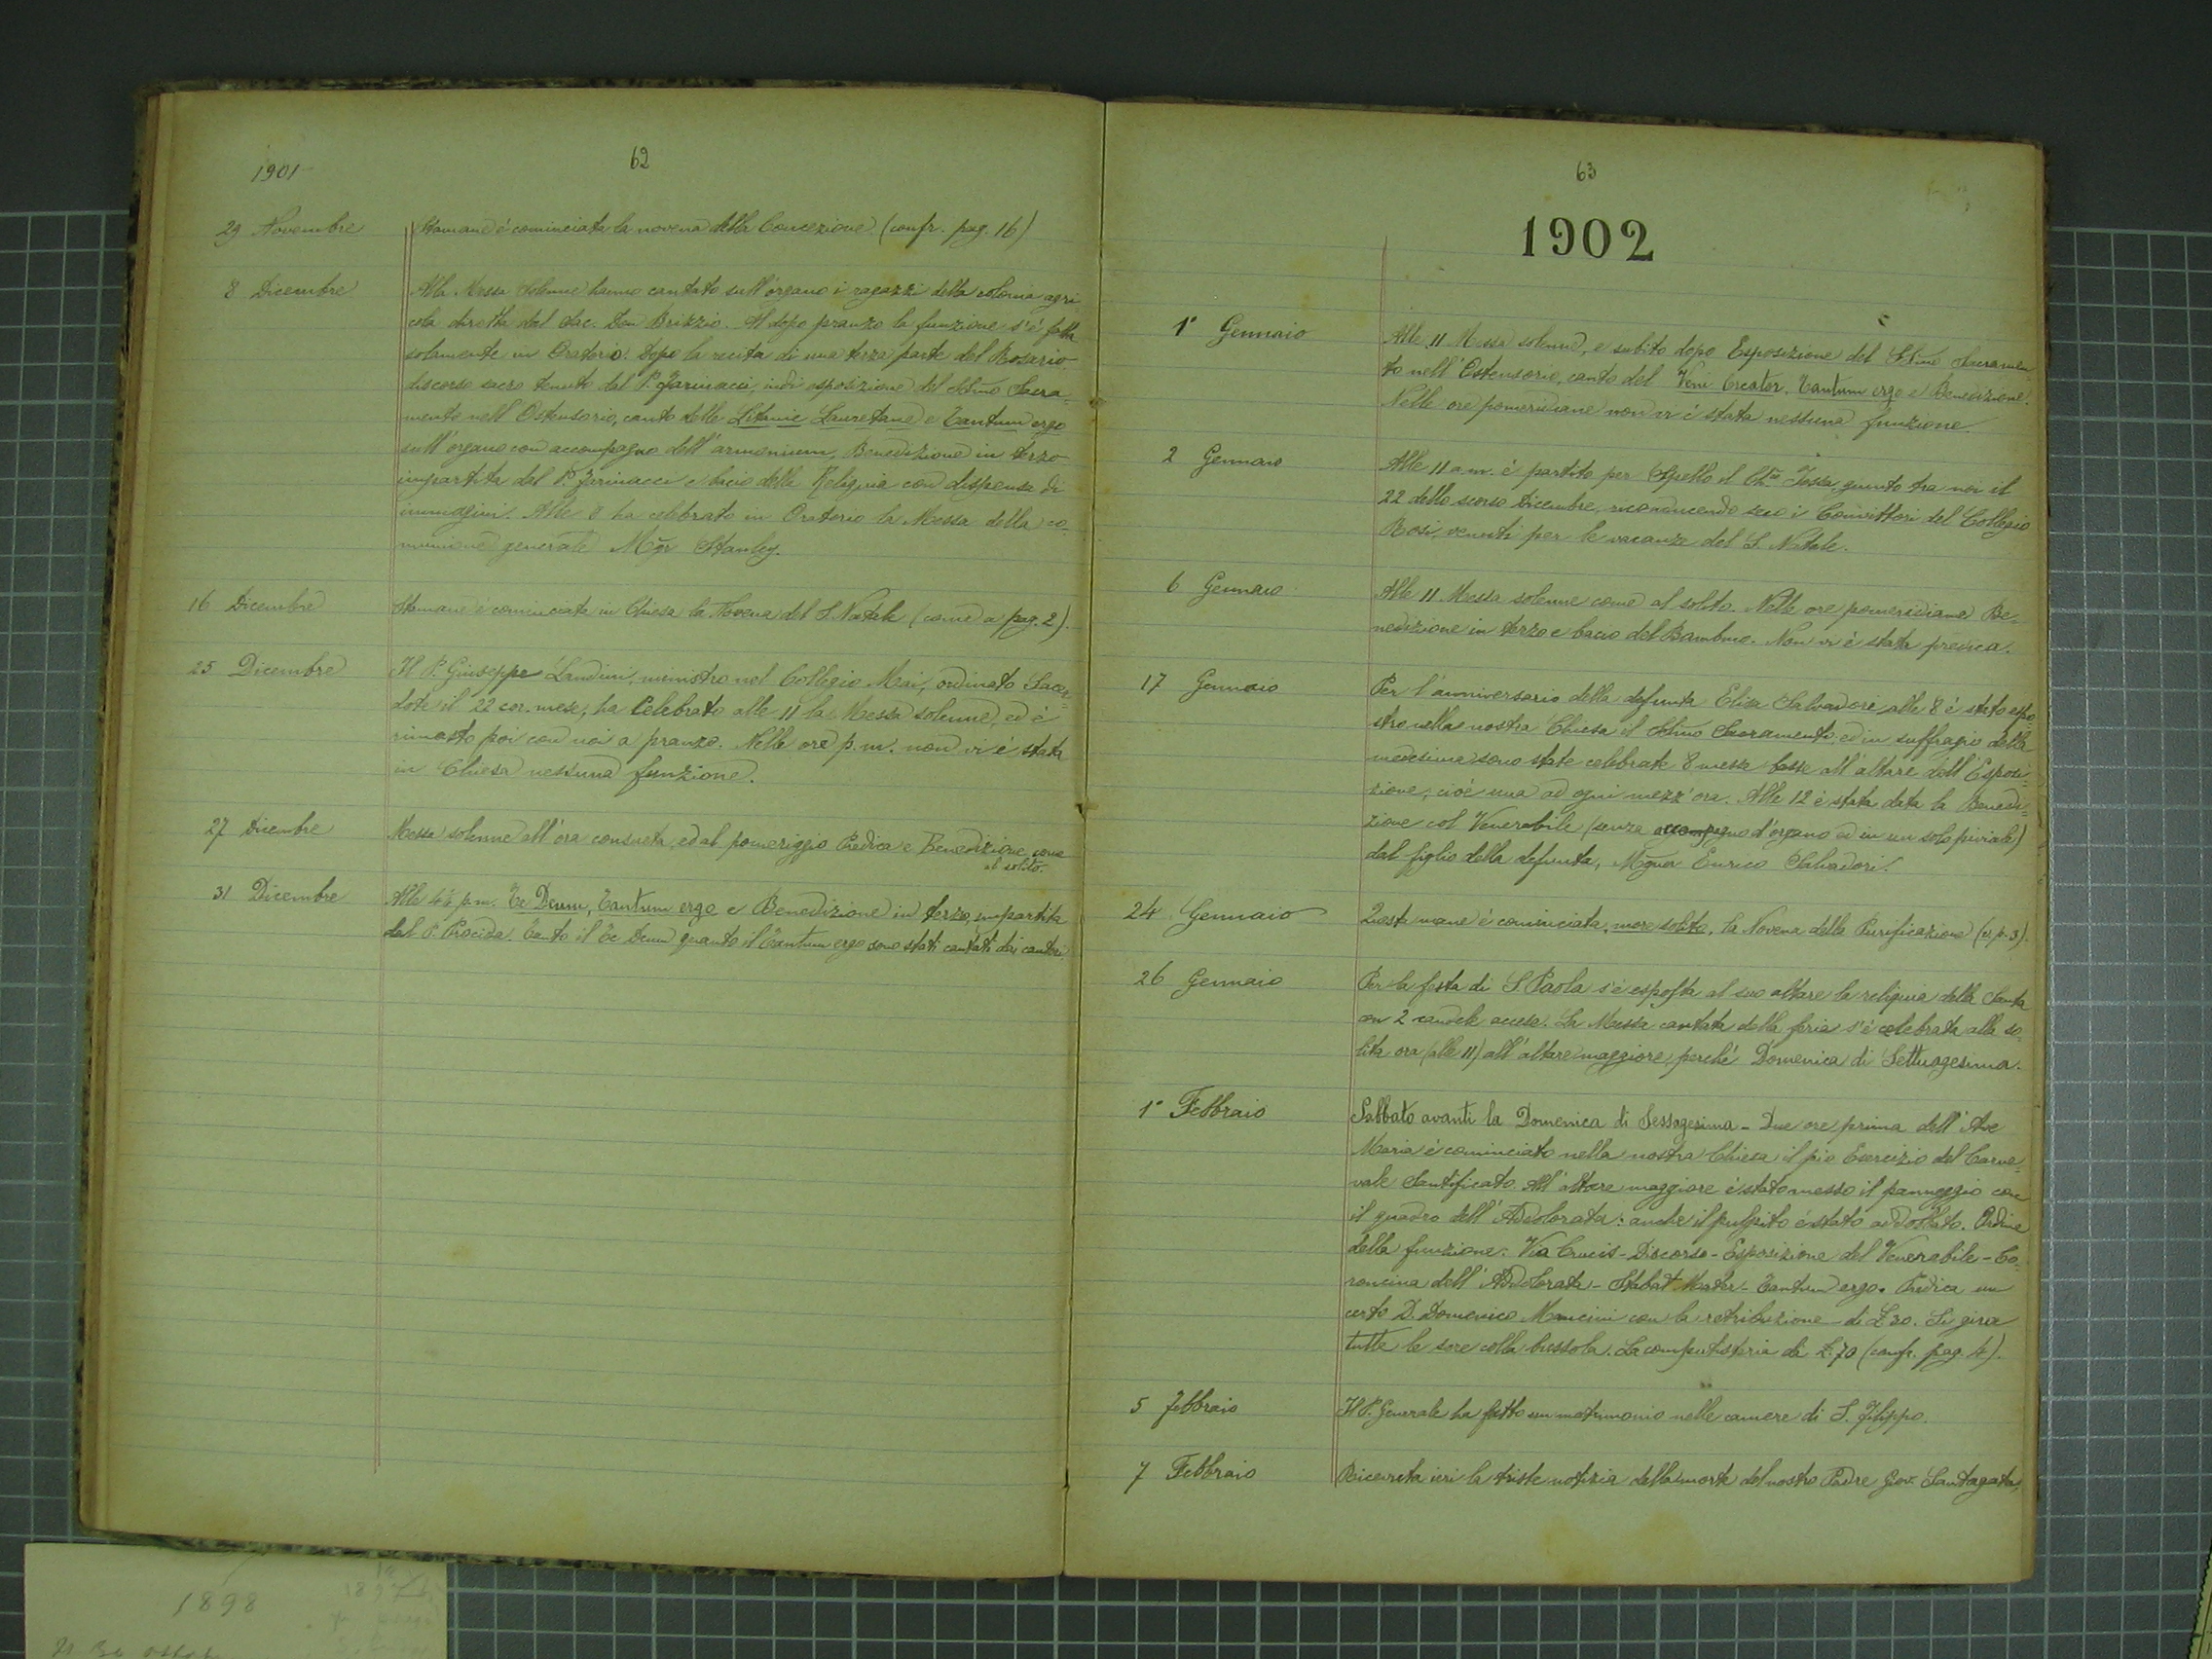 1901
62
29 Novembre Stamane é cominciata la novena della Concezione (confr. pag. 16)
8 Dicembre Alla Messa solenne hanno cantato sull'organo i ragazzi della colonia agri
cola diretta dal Sac. Don Brizzio. Al dopo pranzo la funzione s'é fatta
solamente in Oratorio. Dopo la recita di una terza parte del Rosario,
discorso sacro tenuto dal P. Farinacci, indi esposizione del Ssmo Sacra=
mento nell'Ostensorio, canto delle Litanie Lauretane e Tantum ergo
sull'organo con accompagno dell'armonium, Benedizione in terzo
impartita dal P. Farinacci e bacio della Reliquia con dispensa di
immagini. Alle 8 ha celebrato in Oratorio la Messa della co=
munione generale Mgr Stanley.
16 Dicembre Stamane é cominciata in Chiesa la Novena del S. Natale (come a pag. 2).
25 Dicembre Il P. Giuseppe Landini, ministro nel Collegio Mai, ordinato Sacer=
dote il 22 cor. mese, ha Celebrato alle 11 la Messa solenne, ed é
rimasto poi con noi a pranzo. Nelle ore p. m. non vi é stata
in Chiesa nessuna funzione.
27 Dicembre Messa solenne all'ora consueta, ed al pomeriggio Predica e Benedizione come
al solito.
31 Dicembre Alle p.m. Te Deum, Tantum ergo e Benedizione in terzo, impartita
dal P. Procida. Tanto il Te Deum quanto il Tantum ergo sono stati cantati dai cantori.
63
1902
1° Gennaio Alle 11 Messa solenne, e subito dopo Esposizione del SSmo Sacramen=
to nell'Ostensorio, canto del Veni Creator, Tantum ergo e Benedizione.
Nelle ore pomeridiane non vi é stata nessuna funzione.
2 Gennaio Alle 11 a.m. é partito per Spello il Ch.co Tossa, giunto tra noi il
22 dello scorso Dicembre, riconducendo seco i Convittori del Collegio
Rosi, venuti per le vacanze del S. Natale.
6 Gennaio Alle 11 Messa solenne come al solito. Nelle ore pomeridiane Be=
nedizione in terzo e bacio del Bambino. Non vi é stata predica.
17 Gennaio Per l'anniversario della defunta Elisa Salvadori alle 8 é stato espo
sto nella nostra Chiesa il Ssmo Sacramento ed in suffragio della
medesima sono state celebrate 8 messe basse all'altare dell'Esposi=
zione, cioé una ad ogni mezz'ora. Alle 12 é stata data la Benedi=
zione col Venerabile (senza accompagno d'organo ed in un solo piviale)
dal figlio della defunta, Mgnor Enrico Salvadori.
24 Gennaio Questa mane é cominciata, more solito, la Novena della Purificazione (v. p. 3).
26 Gennaio Per la festa di S. Paola s'é esposta al suo altare la reliquia della Santa
con 2 candele accese. La Messa cantata della feria s'é celebrata alla so=
lita ora (alle 11) all'altare maggiore, perché Domenica di Settuagesima.
1° Febbraio Sabbato avanti la Domenica di Sessagesima - Due ore prima dell'Ave
Maria é cominciato nella nostra Chiesa il pio Esercizio del Carne=
vale Santificato. All'altare maggiore é stato messo il panneggio con
il quadro dell'Addolorata: anche il pulpito é stato addobbato. Ordine
della funzione: Via Crucis - Discorso - Esposizione del Venerabile - Co=
roncina dell'Addolorata - Stabat Mater - Tantum ergo. Predica un
certo D. Domenico Mancini con la retribuzione di £ 30. Si gira
tutte le sere colla bussola. La computisteria dá £. 70 (confr. pag. 4).
5 Febbraio Il P. Generale ha fatto un matrimonio nelle camere di S. Filippo.
7 Febbraio Ricevuta ieri la triste notizia della morte del nostro Padre Giov. Santagata,
1898